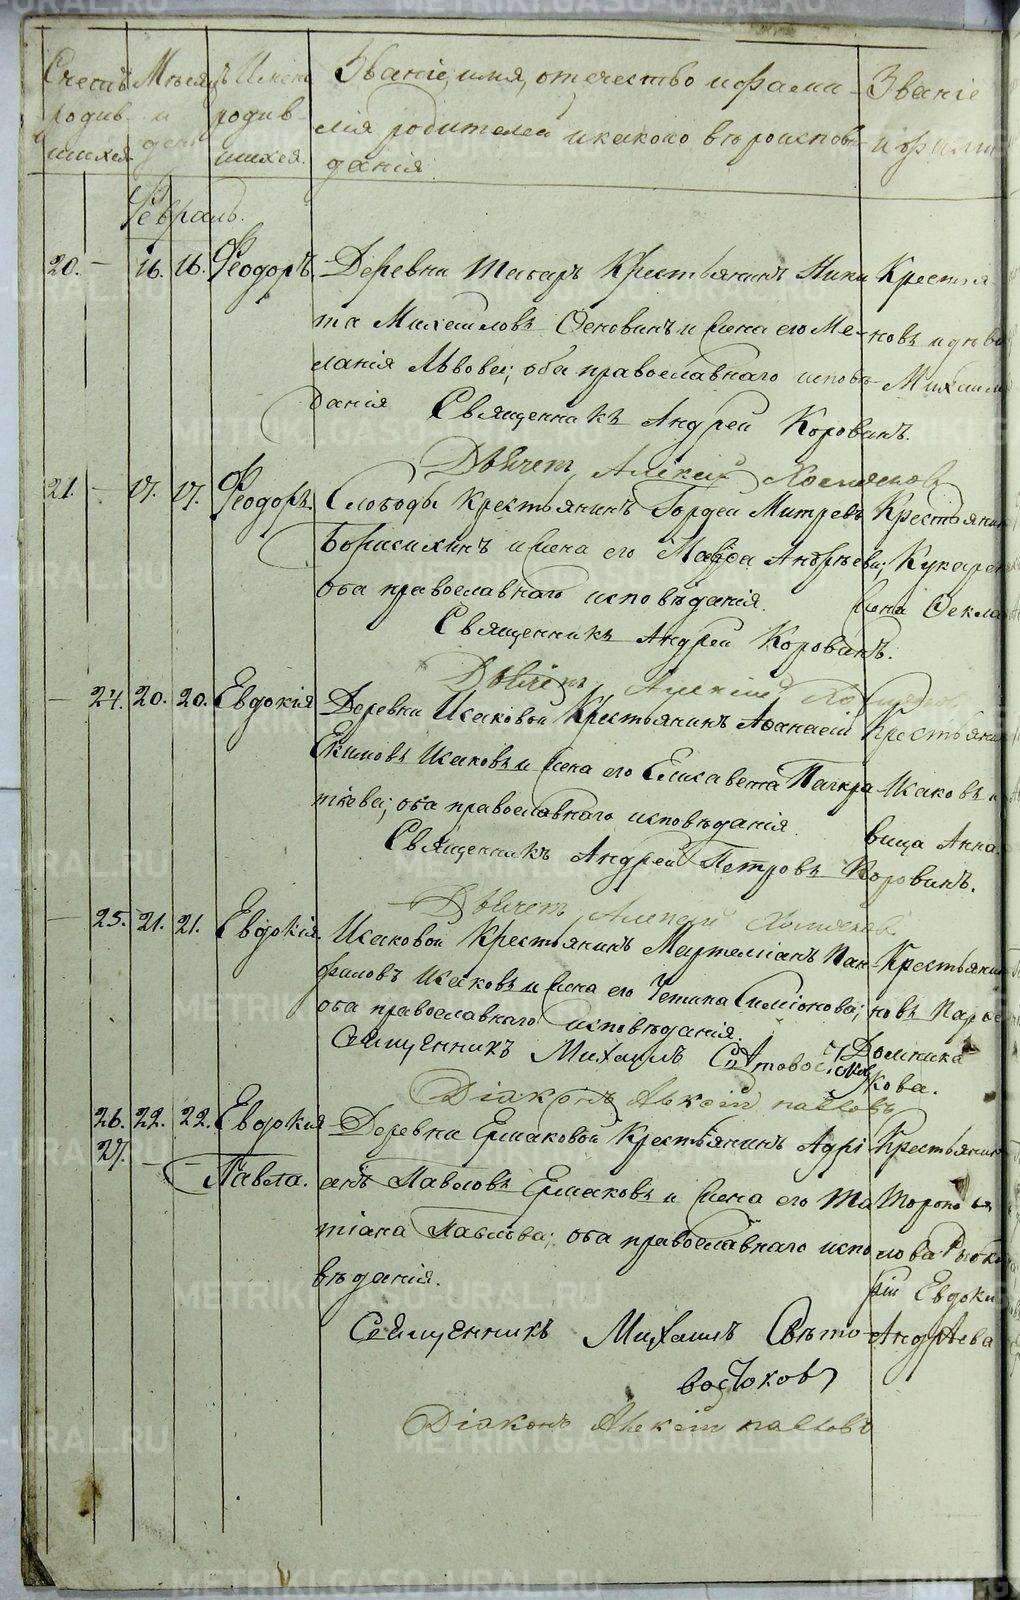 Счетъ родив-шихся
Мѣсяцъ и день
Имена родив-шихся.
Званіе, имя, отчество и фами-
лія родителей и какого вѣроисповѣ-
данія
Званіе
и фами
Февраль.
20. — 16. 16. Ѳеодоръ.
Деревни Шатаръ Крестьянинъ Ники
та Михаиловъ и Жена его Ме-
ланія Львова; оба православнаго исповѣ-
данія Священникъ Андрей Корованъ.
Алексій
Крестья-
новъ и дѣви
Михаил
21. — 17. 17. Ѳеодоръ.
Слободы Крестьянинъ Гордей Митревъ
Борисихинъ и Жена его Мавра Андрѣева;
оба православнаго исповѣданія.
Священникъ Андрей Корованъ.
Крестьянин
Кукаре
Жена Ѳекла
— 24. 20. 20. Евдокія
Деревни Исаковой Крестьянинъ Аѳанасій
Екимовъ Исаковъ и Жена его Елисавета Панкра
тіева; оба православнаго исповѣданія.
Священникъ Андрей Петровъ Корованъ.
Крестьянин
Исаковъ и
вица Анна
— 25. 21. 21. Евдокія.
Исаковой Крестьянинъ Мартеміанъ Пан-
филовъ Исаковъ и Жена его Симіонова;
оба православнаго исповѣданія.
Священникъ Михаилъ Свѣтовостоковъ
Діаконъ Алексій Павловъ
Крестьянин
новъ
Домника
кова.
26. 22. 22. Евдокія
27. — — Павла.
Деревни Ермаковой Крестьянинъ Адрі
анъ Павловъ Ермаковъ и Жена его Та
тіана Павлова; оба православнаго испо
вѣданія.
Священникъ Михаилъ Свѣто-
востоковъ
Діаконъ Алексій Павловъ
Крестьянин
Евдоки
Андрѣева
METRIKI.GASO-URAL.RU